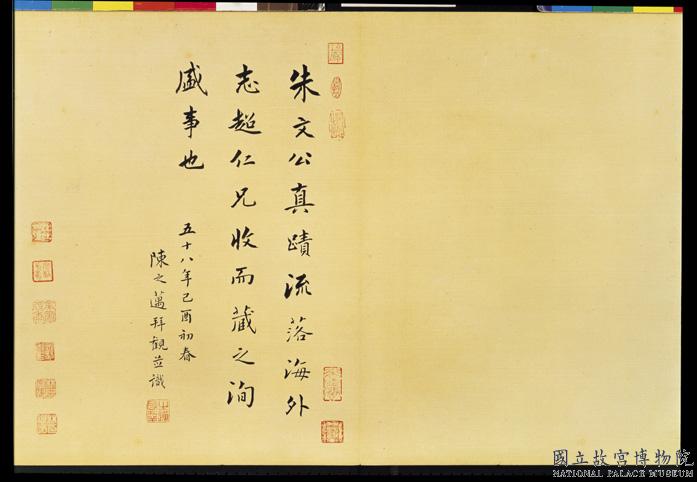 朱文公真蹟流落海外
志超仁兄收而藏之洵
盛事也
五十八年己酉初春
陳之邁拜觀並識
國立故宮博物院
NATIONAL PALACE MUSEUM